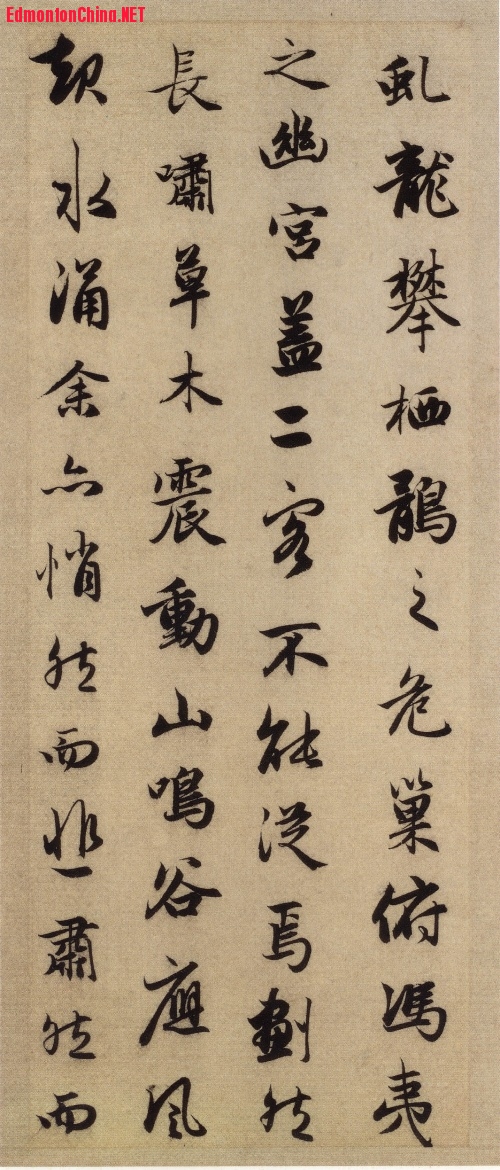 EdmontonChina.NET
虬龍攀栖鶻之危巢俯馮夷
之幽宮蓋二客不能從焉劃然
長嘯草木震動山鳴谷應風
起水涌余亦悄然而悲肅然而